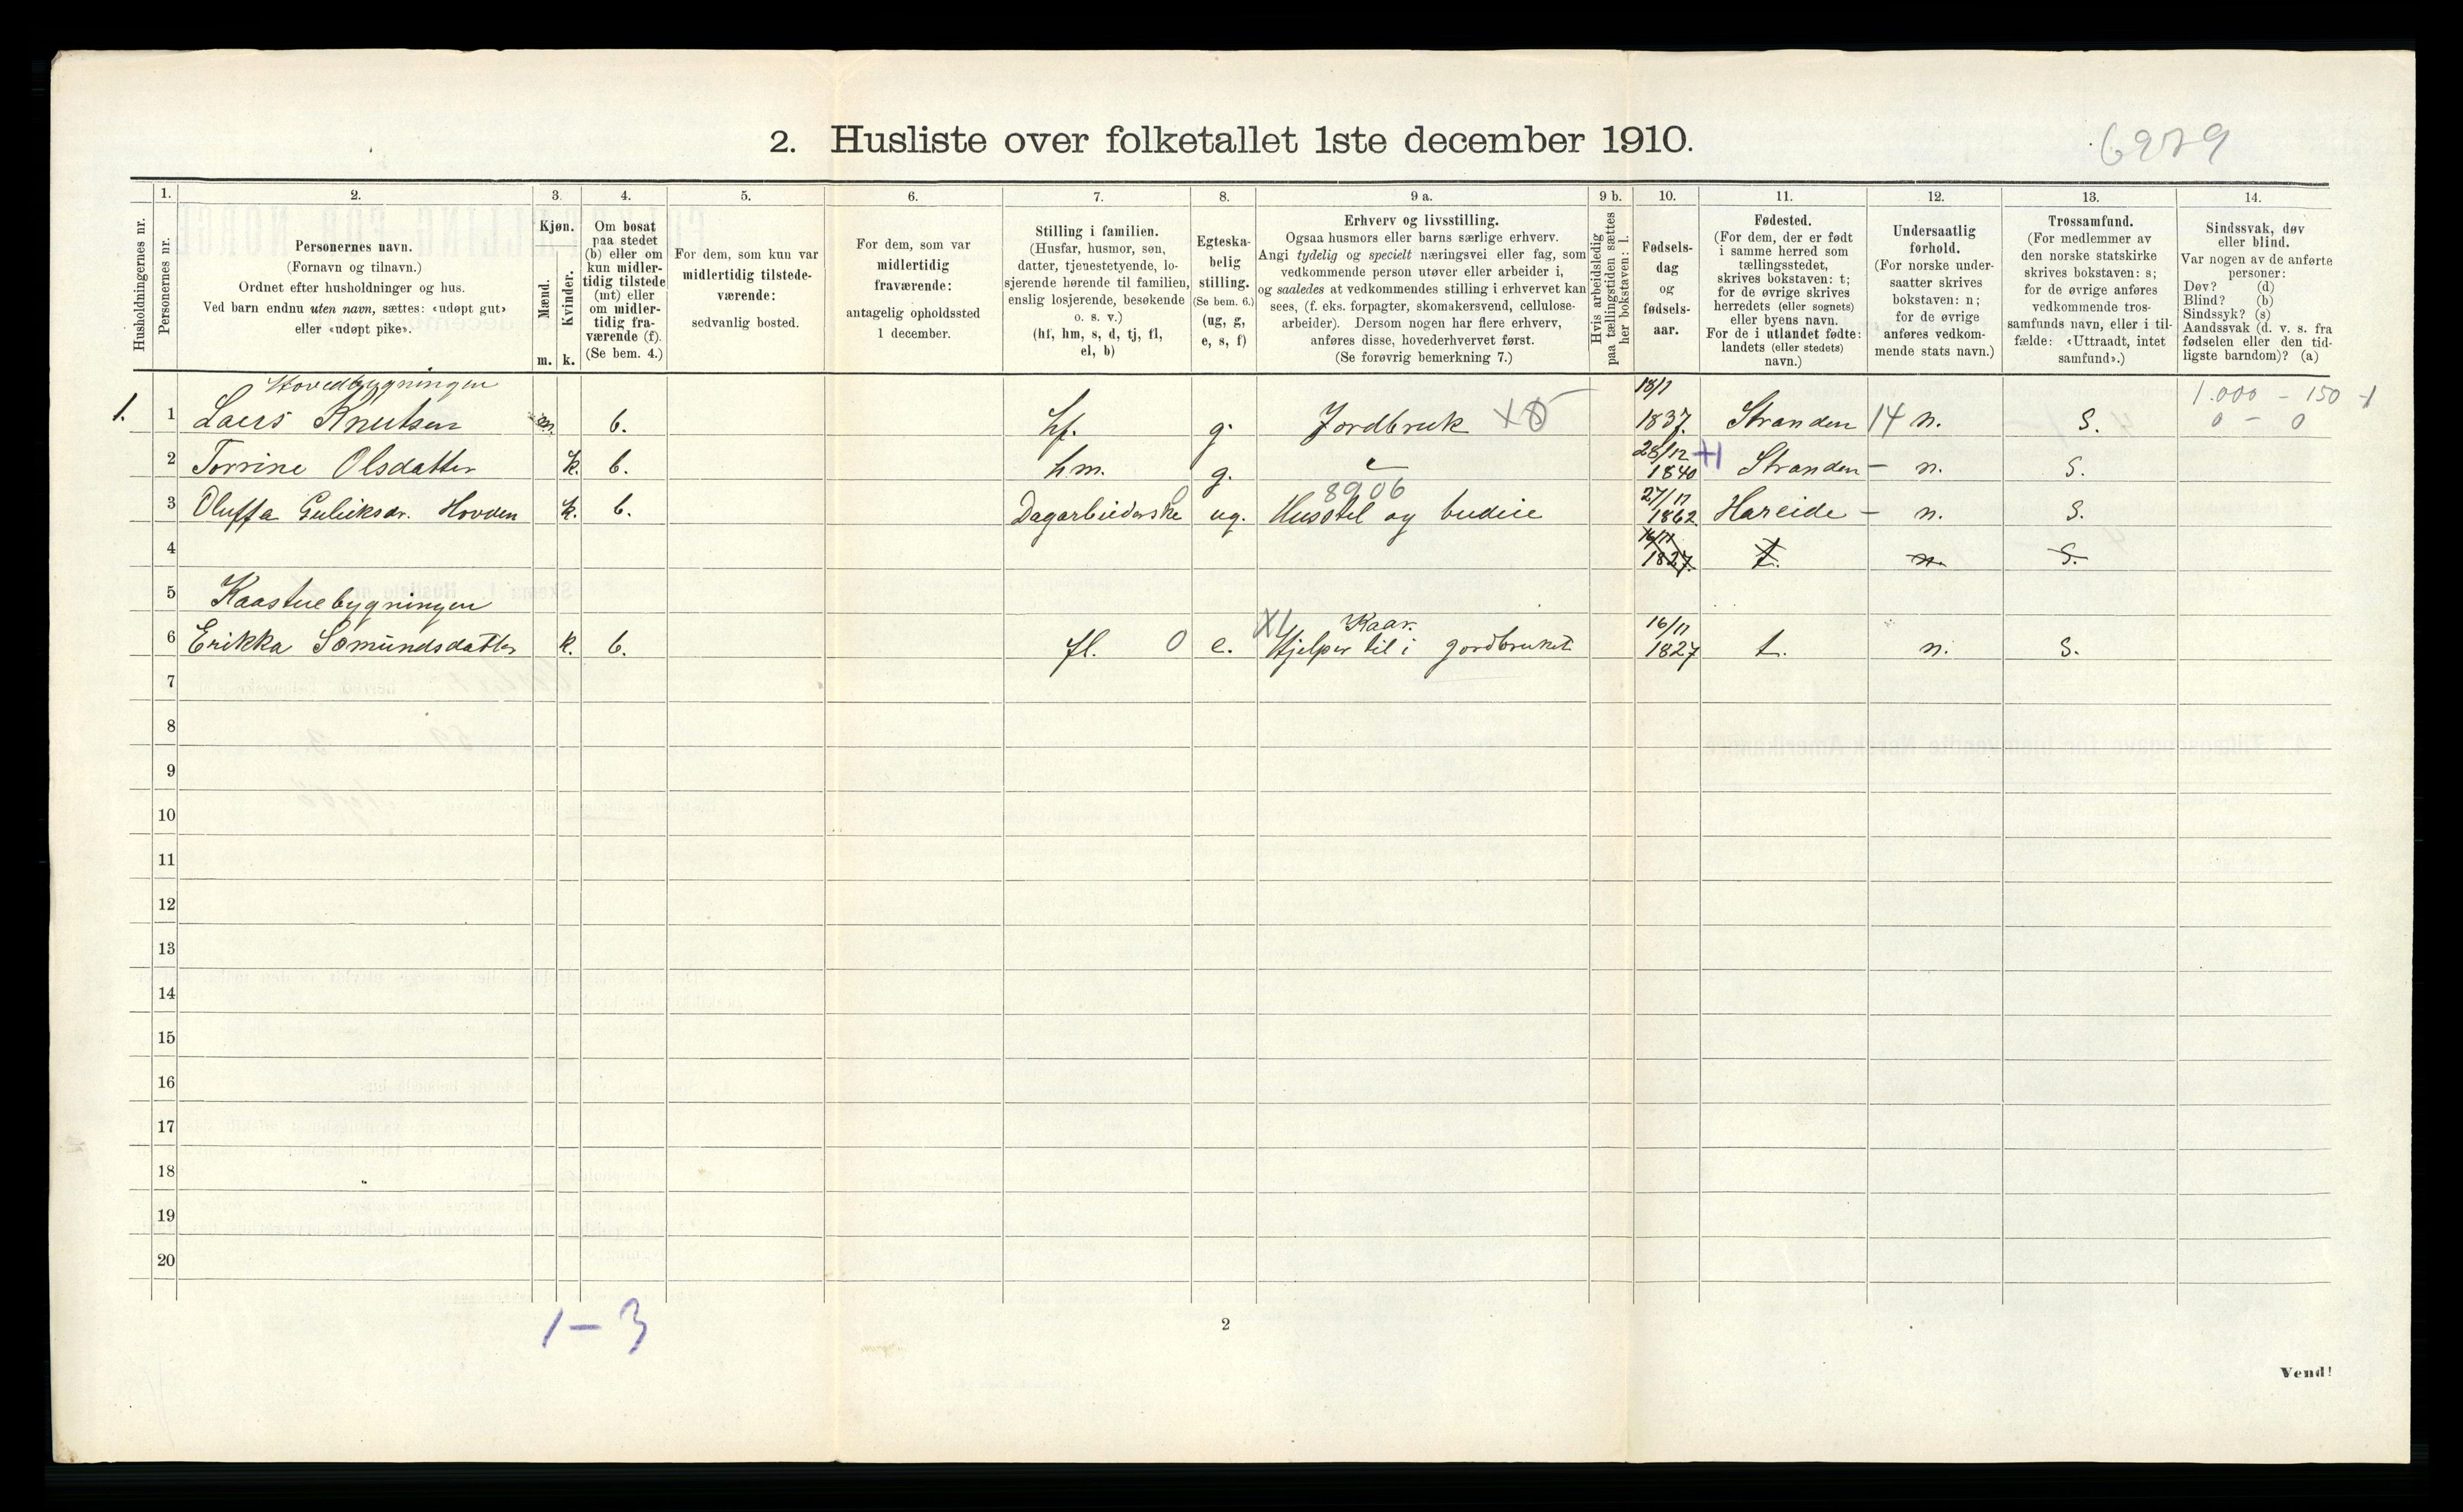 2. Husliste over folketallet 1ste december 1910.
6929
Husholdningernes nr.
1.
Personernes nr.
2.
Personernes navn.
(Fornavn og tilnavn.)
Ordnet efter husholdninger og hus.
Ved barn endnu uten navn, sættes: «udøpt gut»
eller «udøpt pike».
3.
Kjøn.
Mænd.
Kvinder.
m. k.
4.
Om bosat
paa stedet
(b) eller om
kun midler-
tidig tilstede
(mt) eller
om midler-
tidig fra-
værende (f).
(Se bem. 4.)
5.
For dem, som kun var
midlertidig tilstede-
værende:
sedvanlig bosted.
6.
For dem, som var
midlertidig
fraværende:
antagelig opholdssted
1 december.
7.
Stilling i familien.
(Husfar, husmor, søn,
datter, tjenestetyende, lo-
sjerende hørende til familien,
enslig losjerende, besøkende
o. s. v.)
(hf, hm, s, d, tj, fl,
el, b)
8.
Egteska-
belig
stilling.
(Se bem. 6.)
(ug, g,
e, s, f)
9 a.
Erhverv og livsstilling.
Ogsaa husmors eller barns særlige erhverv.
Angi tydelig og specielt næringsvei eller fag, som
vedkommende person utøver eller arbeider i,
og saaledes at vedkommendes stilling i erhvervet kan
sees, (f. eks. forpagter, skomakersvend, cellulose-
arbeider). Dersom nogen har flere erhverv,
anføres disse, hovederhvervet først.
(Se forøvrig bemerkning 7.)
9 b.
Hvis arbeidsledig
paa tællingstiden sættes
her bokstaven: l.
10.
Fødsels-
dag
og
fødsels-
aar.
11.
Fødested.
(For dem, der er født
i samme herred som
tællingsstedet,
skrives bokstaven: t;
for de øvrige skrives
herredets (eller sognets)
eller byens navn.
For de i utlandet fødte:
landets (eller stedets)
navn.)
12.
Undersaatlig
forhold.
(For norske under-
saatter skrives
bokstaven: n;
for de øvrige
anføres vedkom-
mende stats navn.)
13.
Trossamfund.
(For medlemmer av
den norske statskirke
skrives bokstaven: s;
for de øvrige anføres
vedkommende tros-
samfunds navn, eller i til-
fælde: «Uttraadt, intet
samfund».)
14.
Sindssvak, døv
eller blind.
Var nogen av de anførte
personer:
Døv? (d)
Blind? (b)
Sindssyk? (s)
Aandssvak (d. v. s. fra
fødselen eller den tid-
ligste barndom)? (a)
Hovedbygningen 18/11 1.000 - 150 - 1
1. 1 Laers Knutsen m. b. hf. g. Jordbruk 1837. Stranden 14 n. S. 0 - 0
28/12
2 Torrine Olsdatter k. b. hm. g. 1840 Stranden - n. S.
8906 27/12
3 Oluffa Guliksdr. Hovden k. b. Dagarbeiderske ug. Husstel og budeie 1862 Hareide - n. S.
16/11
4 1827. t. n. S.
5 Kaastuebygningen
X1 Kaar. 16/11
6 Erikka Somundsdatter k. b. fl. 0 e. Hjelper til i gordbruket 1827 t. n. S.
7
8
9
10
11
12
13
14
15
16
17
18
19
20
1-3
2
Vend!